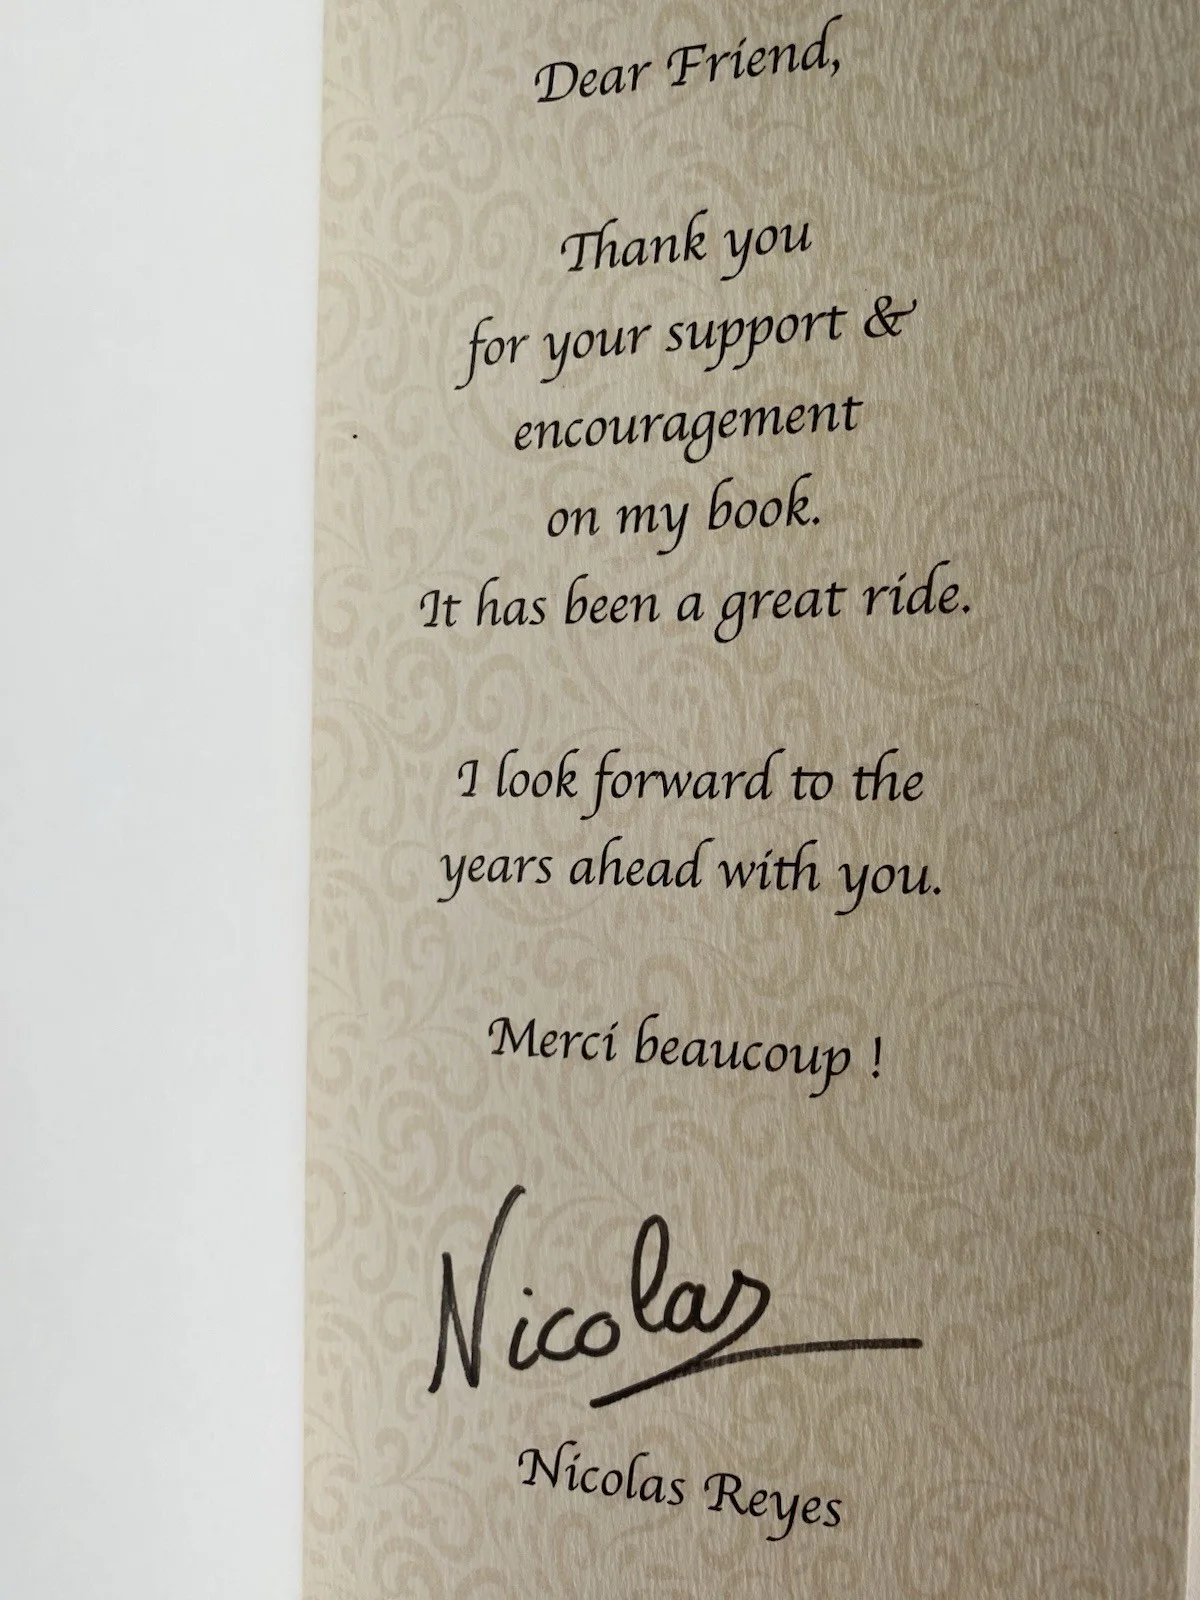 Dear Friend,
Thank you
for your support &
encouragement
on my book.
It has been a great ride.
I look forward to the
years ahead with you.
Merci beaucoup !
Nicolas
Nicolas Reyes